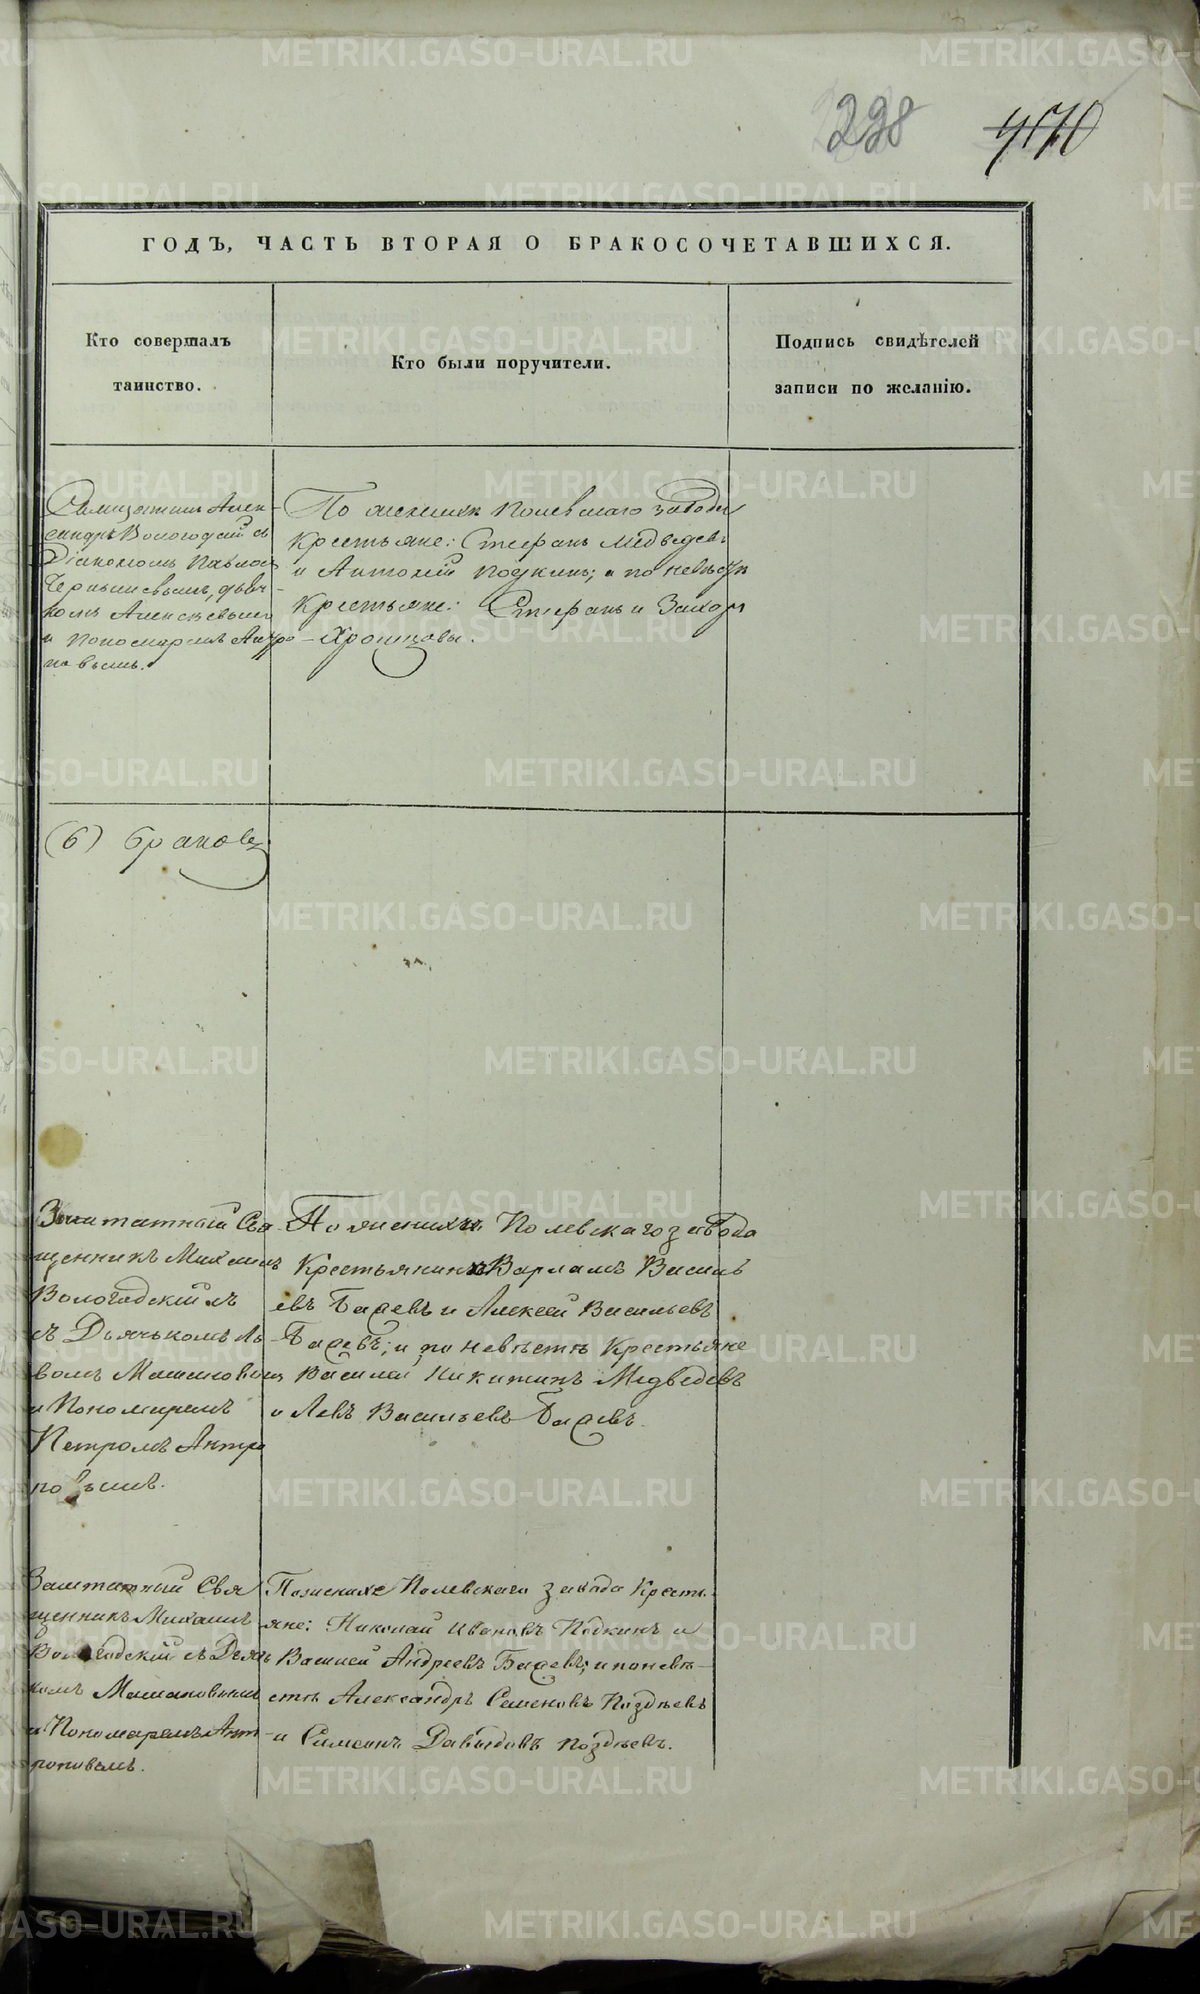 228 470
ГОДЪ, ЧАСТЬ ВТОРАЯ О БРАКОСОЧЕТАВШИХСЯ.
Кто совершалъ
таинство.
Кто были поручители.
Подпись свидѣтелей
записи по желанію.
Священникъ Алек-
сандръ Вологодскій съ
Діакономъ Павломъ
дьяч-
комъ Алексѣевымъ
и Пономаремъ Антро-
повымъ.
По женихѣ Полевскаго завода
Крестьяне: Стефанъ Медведевъ
и Антоній Подкинъ; а по невѣстѣ
Крестьяне: Стефанъ и Захаръ
Хромцовы.
(6) браковъ
Заштатный Свя-
щенникъ Михаилъ
Вологодскій съ
съ Дьячькомъ Ль-
вомъ
и Пономаремъ
Петромъ Антро
повымъ.
По женихѣ Полевскаго завода
Крестьянинъ Варламъ Василь
евъ Бадаевъ и Алексей Васильевъ
Бадаевъ; и по невѣстѣ Крестьяне
Василей Никитинъ Медведевъ
и Левъ Васильевъ Бадаевъ.
Заштатный Свя
щенникъ Михаилъ
Вологодскій съ Дьяч
комъ
и Пономаремъ Ант-
роповымъ.
Поженихе Полевскаго завода Кресть-
яне: Николай Ивановъ Подкинъ и
Василей Андреевъ Бадаевъ; и поневѣ-
стѣ Александръ Семеновъ Поздѣевъ
и Симеонъ Давыдовъ Поздѣевъ.
METRIKI.GASO-URAL.RU